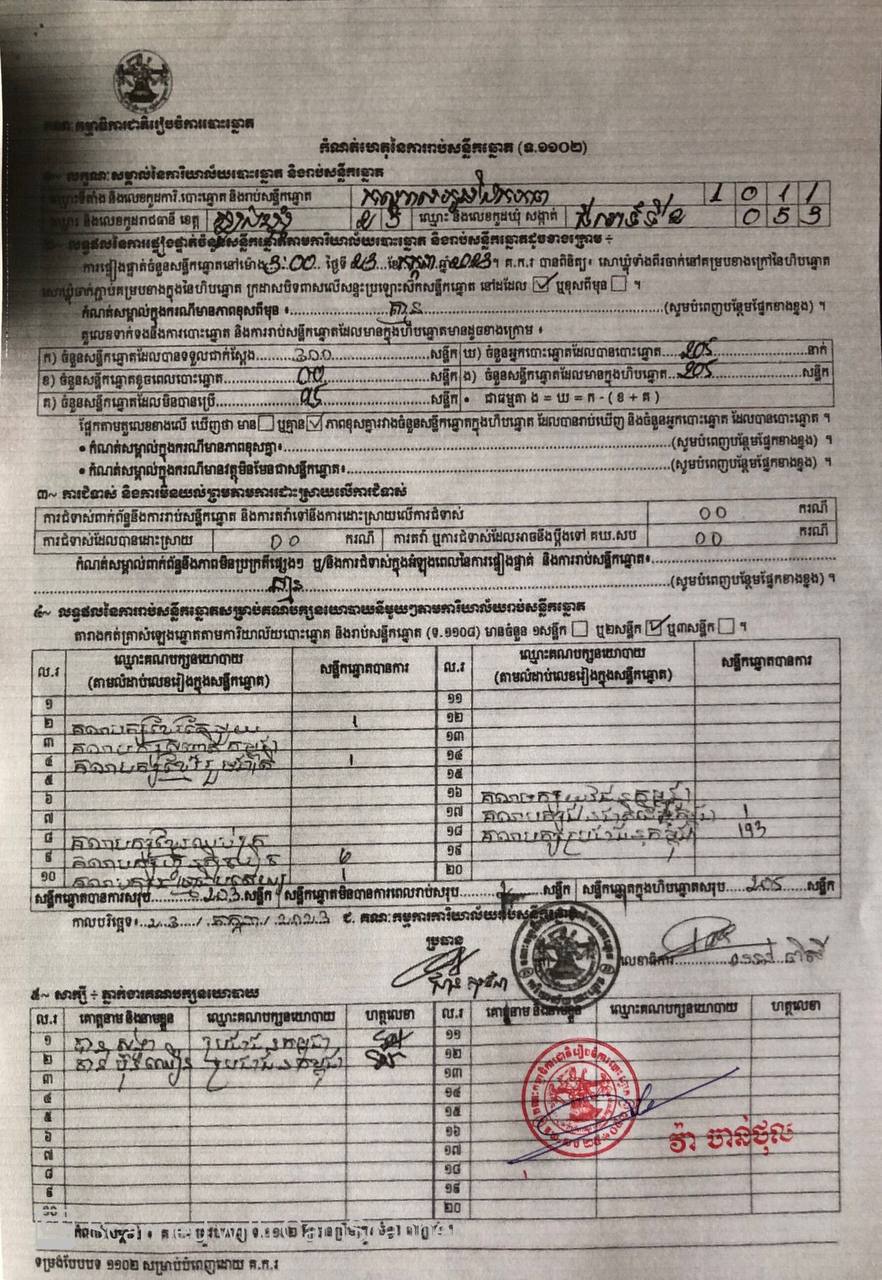 គណៈកម្មាធិការជាតិរៀបចំការបោះឆ្នោត
កំណត់ហេតុនៃការរាប់សន្លឹកឆ្នោត (ទ.១១០២)
១~ លក្ខណៈសម្គាល់នៃការិយាល័យបោះឆ្នោត និងរាប់សន្លឹកឆ្នោត
ឈ្មោះទីតាំង និងលេខកូដការិ.បោះឆ្នោត និងរាប់សន្លឹកឆ្នោត 1 0 1 1
ឈ្មោះ និងលេខកូដរាជធានី ខេត្ត 2 3 ឈ្មោះ និងលេខកូដឃុំ សង្កាត់ 0 5 3
២~ លទ្ធផលនៃការផ្ទៀងផ្ទាត់ចំនួនសន្លឹកឆ្នោតតាមការិយាល័យបោះឆ្នោត និងរាប់សន្លឹកឆ្នោតដូចខាងក្រោម ÷
ការផ្ទៀងផ្ទាត់ចំនួនសន្លឹកឆ្នោតនៅម៉ោង 3:00 ថ្ងៃទី 23 ខែ កក្កដា ឆ្នាំ 2023 ។ គ.ក.រ បានពិនិត្យ៖ សោឃ្លុំទាំងពីរចាក់នៅគម្របខាងក្រៅនៃហិបឆ្នោត
សោឃ្លុំចាក់ភ្ជាប់គម្របខាងក្នុងនៃហិបឆ្នោត ក្រដាសបិទពាសលើសន្ទះប្រឡោះសឹកសន្លឹកឆ្នោត នៅដដែល ☑ ឬខុសពីមុន ☐ ។
កំណត់សម្គាល់ក្នុងករណីមានភាពខុសពីមុន ៖ គ្មាន (សូមបំពេញបន្ថែមផ្នែកខាងខ្នង) ។
តួលេខទាក់ទងនឹងការបោះឆ្នោត និងការរាប់សន្លឹកឆ្នោតដែលមានក្នុងហិបឆ្នោតមានដូចខាងក្រោម ៖
ក) ចំនួនសន្លឹកឆ្នោតដែលបានទទួលជាក់ស្តែង 300 សន្លឹក ឃ) ចំនួនអ្នកបោះឆ្នោតដែលបានបោះឆ្នោត 205 នាក់
ខ) ចំនួនសន្លឹកឆ្នោតខូចពេលបោះឆ្នោត 00 សន្លឹក ង) ចំនួនសន្លឹកឆ្នោតដែលមានក្នុងហិបឆ្នោត 205 សន្លឹក
គ) ចំនួនសន្លឹកឆ្នោតដែលមិនបានប្រើ 95 សន្លឹក • ជាធម្មតា ង = ឃ = ក - ( ខ + គ )
ផ្អែកតាមតួលេខខាងលើ ឃើញថា មាន ☐ ឬគ្មាន ☑ ភាពខុសគ្នារវាងចំនួនសន្លឹកឆ្នោតក្នុងហិបឆ្នោត ដែលបានរាប់ឃើញ និងចំនួនអ្នកបោះឆ្នោត ដែលបានបោះឆ្នោត ។
• កំណត់សម្គាល់ក្នុងករណីមានភាពខុសគ្នា៖ (សូមបំពេញបន្ថែមផ្នែកខាងខ្នង) ។
• កំណត់សម្គាល់ក្នុងករណីមានវត្ថុមិនមែនជាសន្លឹកឆ្នោត៖ (សូមបំពេញបន្ថែមផ្នែកខាងខ្នង) ។
៣~ ការជំទាស់ និងការមិនយល់ព្រមតាមការដោះស្រាយលើការជំទាស់
ការជំទាស់ពាក់ព័ន្ធនឹងការរាប់សន្លឹកឆ្នោត និងការតវ៉ាទៅនឹងការដោះស្រាយលើការជំទាស់ 00 ករណី
ការជំទាស់ដែលបានដោះស្រាយ 00 ករណី ការតវ៉ា ឬការជំទាស់ដែលអាចនឹងប្តឹងទៅ គឃ.សប 00 ករណី
កំណត់សម្គាល់ពាក់ព័ន្ធនឹងភាពមិនប្រក្រតីផ្សេងៗ ឬ/និងការជំទាស់ក្នុងអំឡុងពេលនៃការផ្ទៀងផ្ទាត់ និងការរាប់សន្លឹកឆ្នោត៖
គ្មាន (សូមបំពេញបន្ថែមផ្នែកខាងខ្នង) ។
៤~ លទ្ធផលនៃការរាប់សន្លឹកឆ្នោតសម្រាប់គណបក្សនយោបាយនីមួយៗតាមការិយាល័យរាប់សន្លឹកឆ្នោត
តារាងកត់ត្រាសំឡេងឆ្នោតតាមការិយាល័យបោះឆ្នោត និងរាប់សន្លឹកឆ្នោត (ទ.១១០៨) មានចំនួន ១សន្លឹក ☐ ឬ២សន្លឹក ☑ ឬ៣សន្លឹក ☐ ។
ល.រ ឈ្មោះគណបក្សនយោបាយ (តាមលំដាប់លេខរៀងក្នុងសន្លឹកឆ្នោត) សន្លឹកឆ្នោតបានការ ល.រ ឈ្មោះគណបក្សនយោបាយ (តាមលំដាប់លេខរៀងក្នុងសន្លឹកឆ្នោត) សន្លឹកឆ្នោតបានការ
១ ១១
២ គណបក្ស 1 ១២
៣ គណបក្ស កម្ពុជា ១៣
៤ គណបក្សខ្មែររួបរួមជាតិ 1 ១៤
៥ ១៥
៦ ១៦ គណបក្សយុវជនកម្ពុជា
៧ ១៧ គណបក្ស 1
៨ គណបក្សខ្មែរឈប់ក្រ ១៨ គណបក្សប្រជាជនកម្ពុជា 193
៩ គណបក្សហ្វ៊ុនស៊ិនប៉ិច 6 ១៩
១០ គណបក្ស 1 ២០
សន្លឹកឆ្នោតបានការសរុប 203 សន្លឹក សន្លឹកឆ្នោតមិនបានការពេលរាប់សរុប 2 សន្លឹក សន្លឹកឆ្នោតក្នុងហិបឆ្នោតសរុប 205 សន្លឹក
កាលបរិច្ឆេទ៖ 23 / កក្កដា / 2023 ជ. គណៈកម្មការការិយាល័យរាប់សន្លឹកឆ្នោត
ប្រធាន
លេខាធិការ
៥~ សាក្សី ÷ ភ្នាក់ងារគណបក្សនយោបាយ
ល.រ គោត្តនាម និងនាមខ្លួន ឈ្មោះគណបក្សនយោបាយ ហត្ថលេខា ល.រ គោត្តនាម និងនាមខ្លួន ឈ្មោះគណបក្សនយោបាយ ហត្ថលេខា
១ ប្រជាជនកម្ពុជា ១១
២ ប្រជាជនកម្ពុជា ១២
៣ ១៣
៤ ១៤
៥ ១៥
៦ ១៦
៧ ១៧
៨ ១៨
៩ ១៩
២០
វ៉ា ចាន់ថុល
ទម្រង់បែបបទ ១១០២ សម្រាប់បំពេញដោយ គ.ក.រ